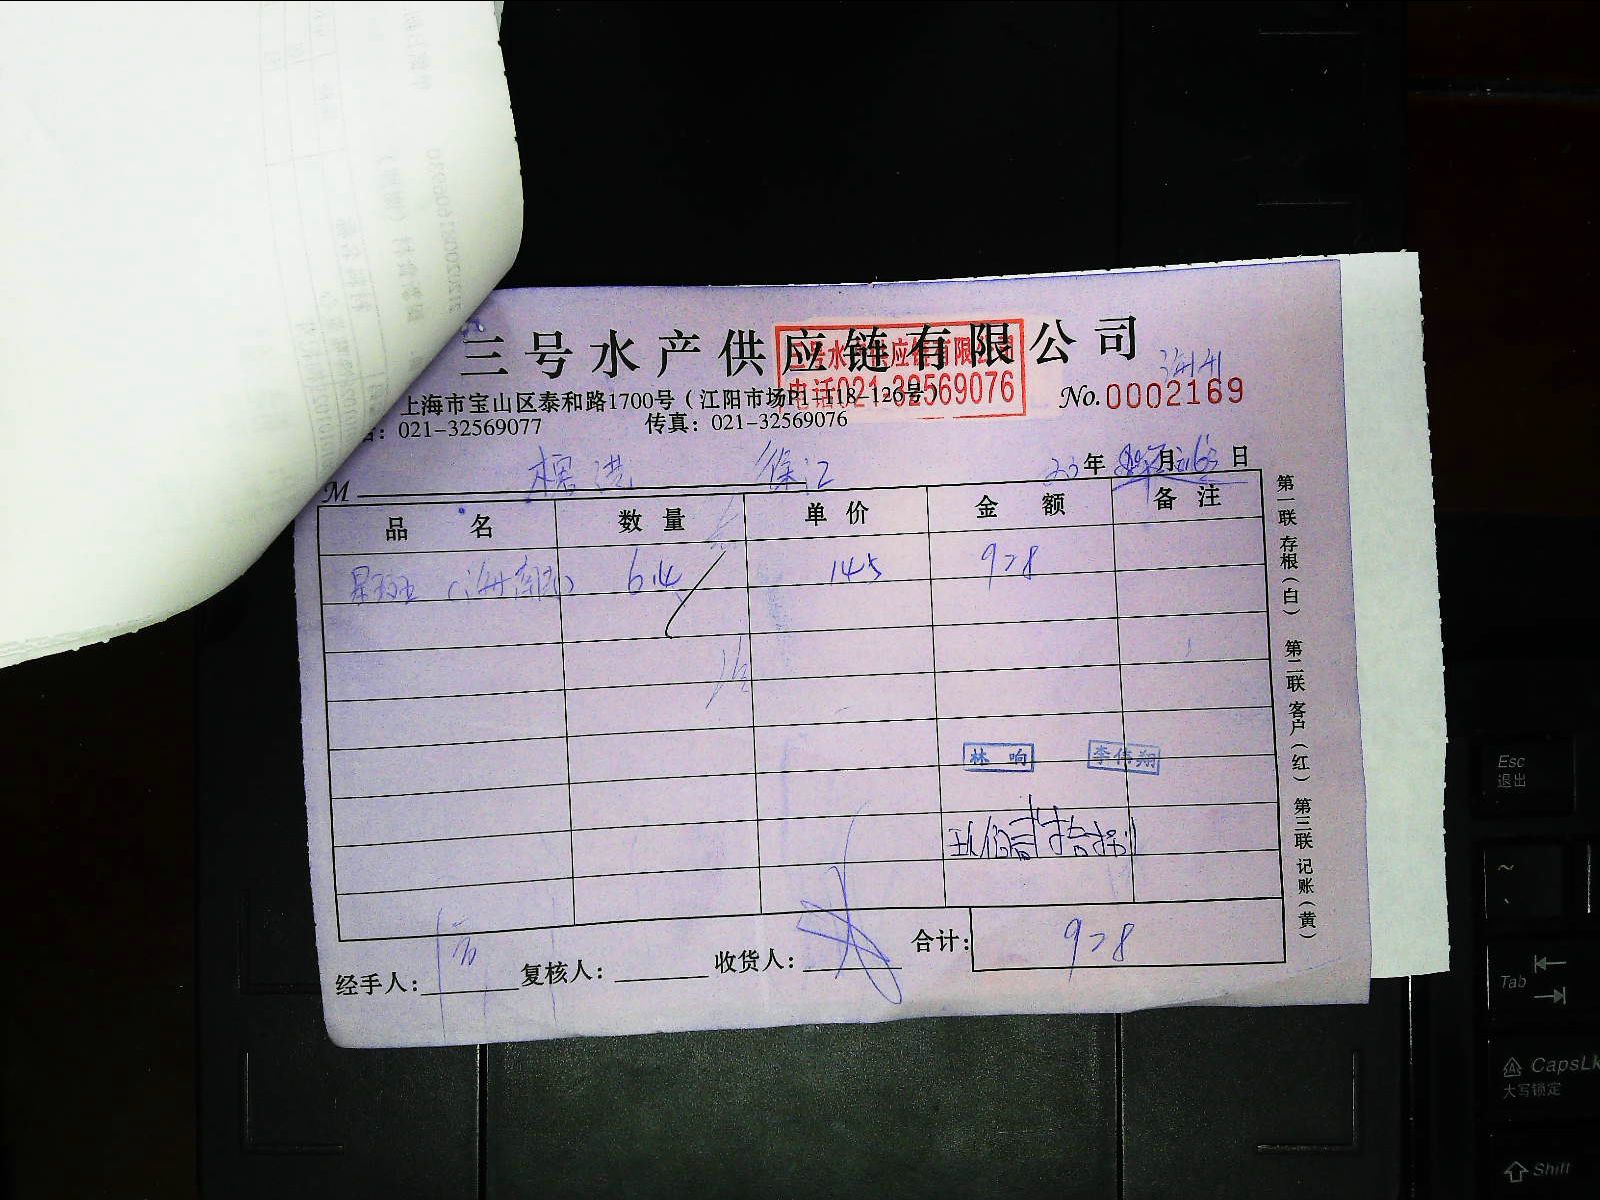 三号水产供应链有限公司
三号水产供应链有限公司
电话021-32569076
上海市宝山区泰和路1700号(江阳市场P1-T18-126号)
No.0002169
021-32569077 传真:021-32569076
徐汇
M 年 月 日
品名 数量 单价 金额 备注
6.4 145 928
林响 李伟翔
玖佰贰拾捌
合计: 928
经手人: 复核人: 收货人:
第一联 存根(白) 第二联 客户(红) 第三联 记账(黄)
Esc
退出
~
Tab
CapsLk
大写锁定
Shift